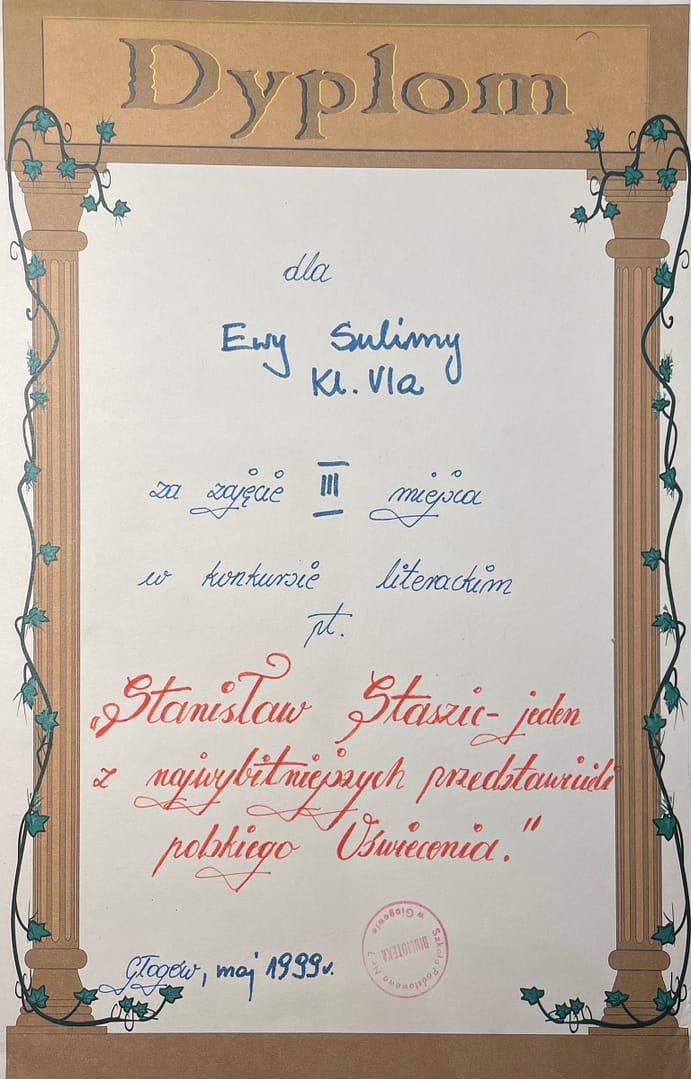 Dyplom
dla
Ewy Sulimy
Kl. VIa
za zajęcie III miejsca
w konkursie literackim
pt.
„Stanisław Staszic - jeden
z najwybitniejszych przedstawicieli
polskiego Oświecenia."
Głogów, maj 1999r.
Szkoła Podstawowa Nr 7
w Głogowie
BIBLIOTEKA